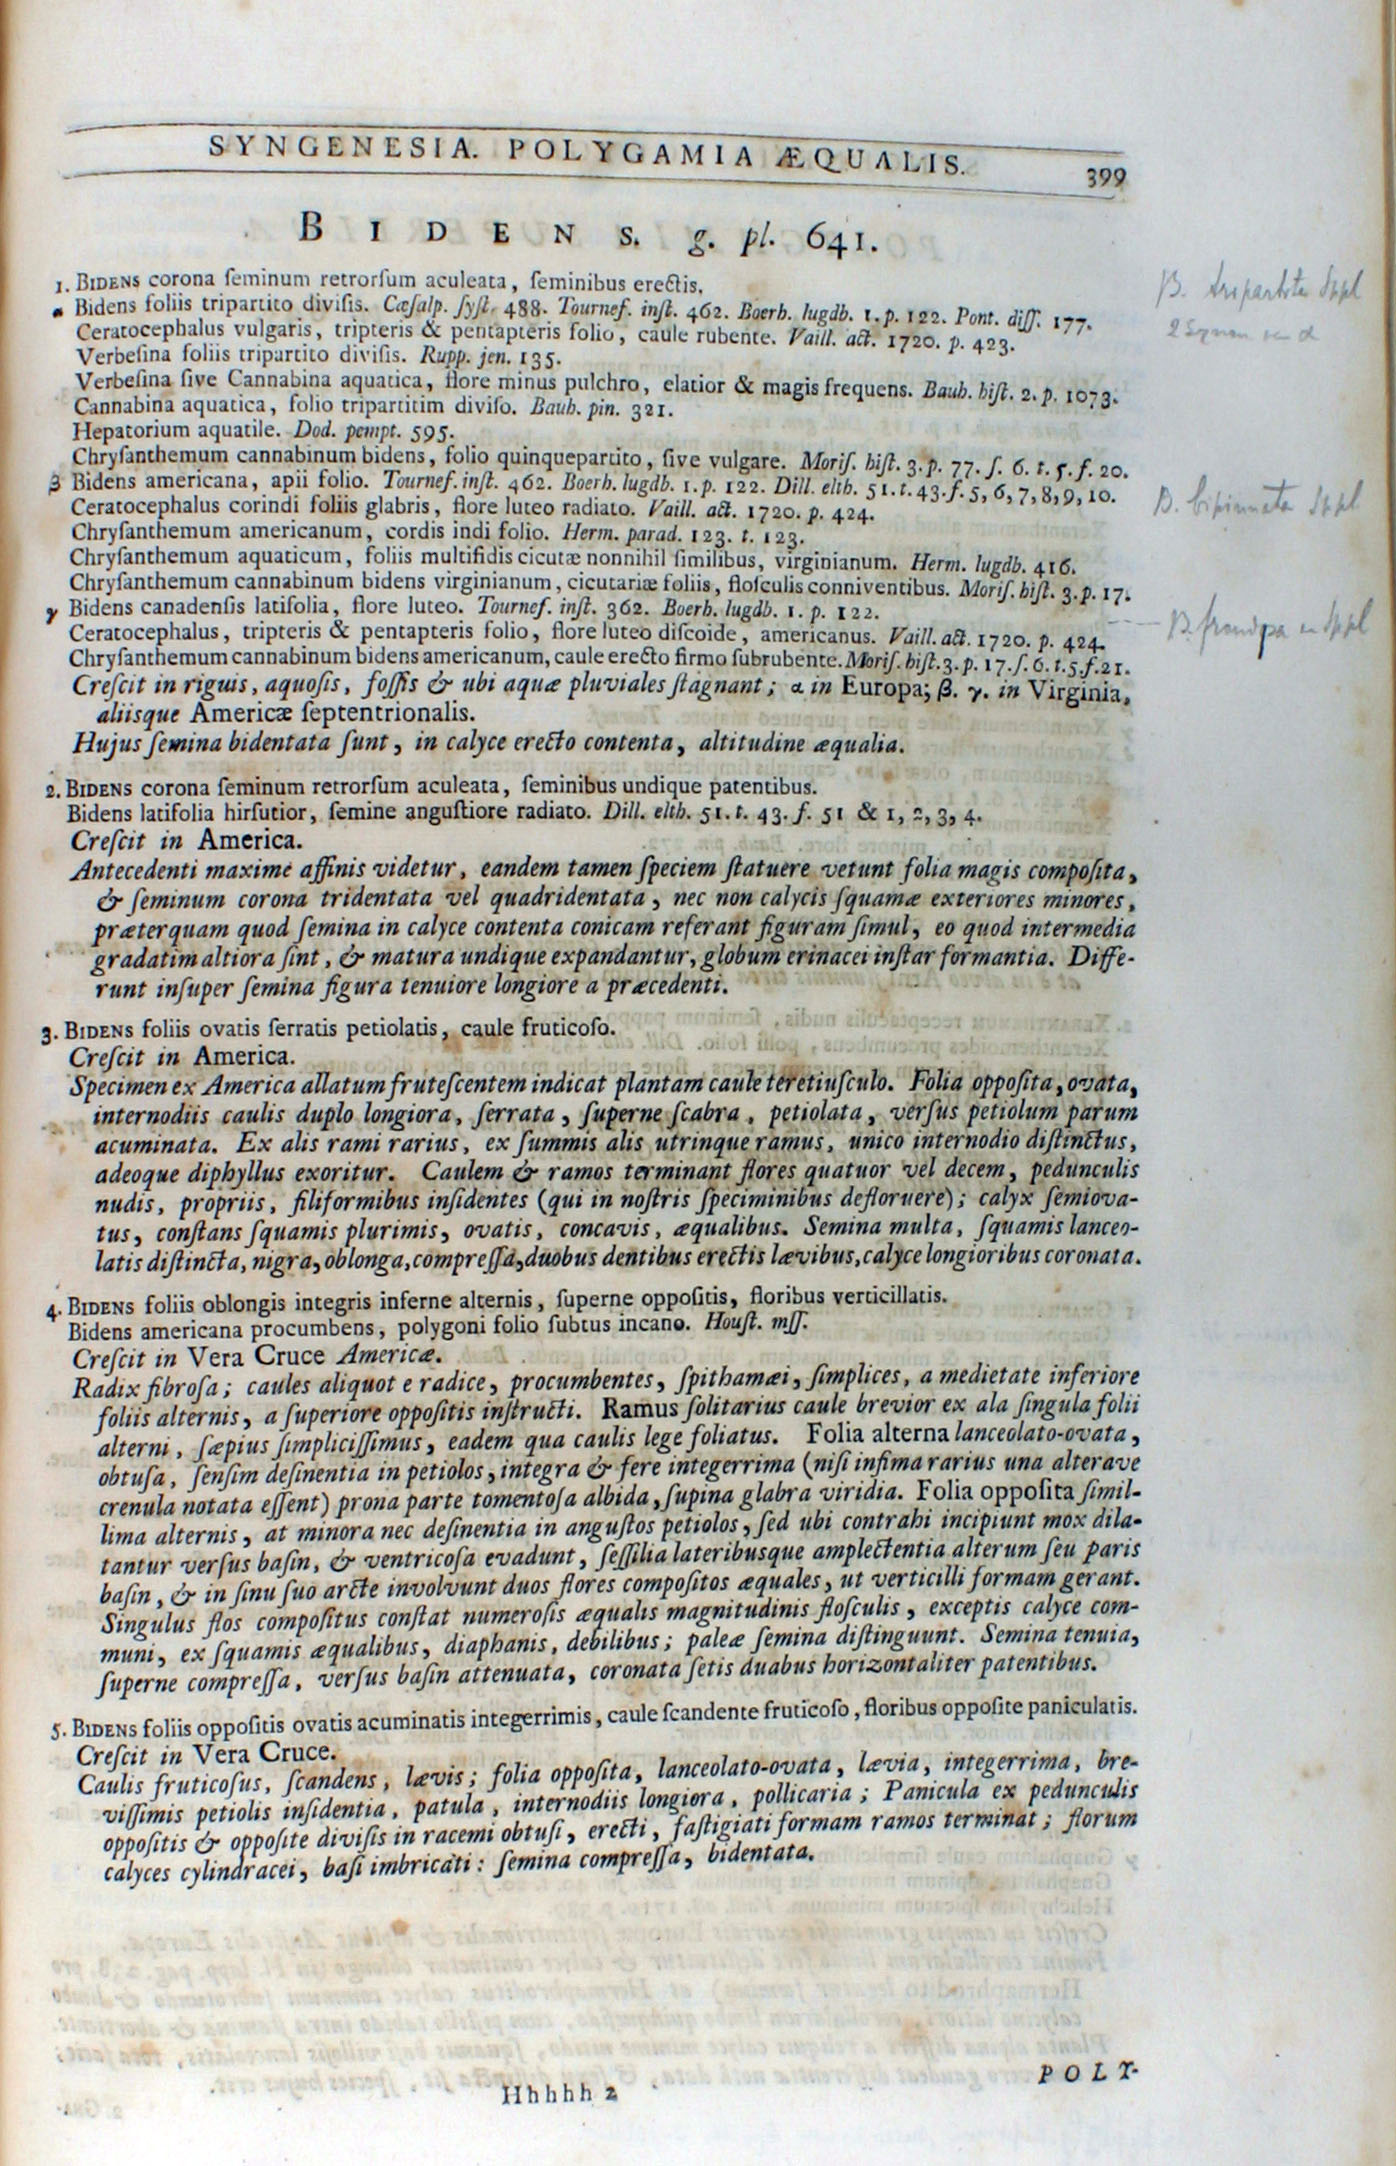 SYNGENESIA. POLYGAMIA ÆQUALIS. 399
BIDENS. g. pl. 641.
1. BIDENS corona ſeminum retrorſum aculeata, ſeminibus erectis.
Bidens foliis tripartito diviſis. Cæſalp. ſyſt. 488. Tournef. inſt. 462. Boerh. lugdb. 1. p. 122. Pont. diſſ. 177.
Ceratocephalus vulgaris, tripteris & pentapteris folio, caule rubente. Vaill. act. 1720. p. 423.
Verbeſina foliis tripartito diviſis. Rupp. jen. 135.
Verbeſina ſive Cannabina aquatica, flore minus pulchro, elatior & magis frequens. Bauh. hiſt. 2. p. 1073.
Cannabina aquatica, folio tripartitim diviſo. Bauh. pin. 321.
Hepatorium aquatile. Dod. pempt. 595.
Chryſanthemum cannabinum bidens, folio quinquepartito, ſive vulgare. Moriſ. hiſt. 3. p. 77. ſ. 6. t. 5. f. 20.
β Bidens americana, apii folio. Tournef. inſt. 462. Boerh. lugdb. 1. p. 122. Dill. elth. 51. t. 43. f. 5, 6, 7, 8, 9, 10.
Ceratocephalus corindi foliis glabris, flore luteo radiato. Vaill. act. 1720. p. 424.
Chryſanthemum americanum, cordis indi folio. Herm. parad. 123. t. 123.
Chryſanthemum aquaticum, foliis multifidis cicutæ nonnihil ſimilibus, virginianum. Herm. lugdb. 416.
Chryſanthemum cannabinum bidens virginianum, cicutariæ foliis, floſculis conniventibus. Moriſ. hiſt. 3. p. 17.
γ Bidens canadenſis latifolia, flore luteo. Tournef. inſt. 362. Boerh. lugdb. 1. p. 122.
Ceratocephalus, tripteris & pentapteris folio, flore luteo diſcoide, americanus. Vaill. act. 1720. p. 424.
Chryſanthemum cannabinum bidens americanum, caule erecto firmo ſubrubente. Moriſ. hiſt. 3. p. 17. ſ. 6. t. 5. f. 21.
Creſcit in riguis, aquoſis, foſſis & ubi aquæ pluviales ſtagnant; α in Europa; β. γ. in Virginia,
aliisque Americæ ſeptentrionalis.
Hujus ſemina bidentata ſunt, in calyce erecto contenta, altitudine æqualia.
2. BIDENS corona ſeminum retrorſum aculeata, ſeminibus undique patentibus.
Bidens latifolia hirſutior, ſemine anguſtiore radiato. Dill. elth. 51. t. 43. f. 51 & 1, 2, 3, 4.
Creſcit in America.
Antecedenti maxime affinis videtur, eandem tamen ſpeciem ſtatuere vetunt folia magis compoſita,
& ſeminum corona tridentata vel quadridentata, nec non calycis ſquamæ exteriores minores,
præterquam quod ſemina in calyce contenta conicam referant figuram ſimul, eo quod intermedia
gradatim altiora ſint, & matura undique expandantur, globum erinacei inſtar formantia. Diffe-
runt inſuper ſemina figura tenuiore longiore a præcedenti.
3. BIDENS foliis ovatis ſerratis petiolatis, caule fruticoſo.
Creſcit in America.
Specimen ex America allatum fruteſcentem indicat plantam caule teretiuſculo. Folia oppoſita, ovata,
internodiis caulis duplo longiora, ſerrata, ſuperne ſcabra, petiolata, verſus petiolum parum
acuminata. Ex alis rami rarius, ex ſummis alis utrinque ramus, unico internodio diſtinctus,
adeoque diphyllus exoritur. Caulem & ramos terminant flores quatuor vel decem, pedunculis
nudis, propriis, filiformibus inſidentes (qui in noſtris ſpeciminibus defloruere); calyx ſemiova-
tus, conſtans ſquamis plurimis, ovatis, concavis, æqualibus. Semina multa, ſquamis lanceo-
latis diſtincta, nigra, oblonga, compreſſa, duobus dentibus erectis lævibus, calyce longioribus coronata.
4. BIDENS foliis oblongis integris inferne alternis, ſuperne oppoſitis, floribus verticillatis.
Bidens americana procumbens, polygoni folio ſubtus incano. Houſt. mſſ.
Creſcit in Vera Cruce Americæ.
Radix fibroſa; caules aliquot e radice, procumbentes, ſpithamæi, ſimplices, a medietate inferiore
foliis alternis, a ſuperiore oppoſitis inſtructi. Ramus ſolitarius caule brevior ex ala ſingula folii
alterni, ſæpius ſimpliciſſimus, eadem qua caulis lege foliatus. Folia alterna lanceolato-ovata,
obtuſa, ſenſim deſinentia in petiolos, integra & fere integerrima (niſi infima rarius una alterave
crenula notata eſſent) prona parte tomentoſa albida, ſupina glabra viridia. Folia oppoſita ſimil-
lima alternis, at minora nec deſinentia in anguſtos petiolos, ſed ubi contrahi incipiunt mox dila-
tantur verſus baſin, & ventricoſa evadunt, ſeſſilia lateribusque amplectentia alterum ſeu paris
baſin, & in ſinu ſuo arcte involvunt duos flores compoſitos æquales, ut verticilli formam gerant.
Singulus flos compoſitus conſtat numeroſis æqualis magnitudinis floſculis, exceptis calyce com-
muni, ex ſquamis æqualibus, diaphanis, debilibus; paleæ ſemina diſtinguunt. Semina tenuia,
ſuperne compreſſa, verſus baſin attenuata, coronata ſetis duabus horizontaliter patentibus.
5. BIDENS foliis oppoſitis ovatis acuminatis integerrimis, caule ſcandente fruticoſo, floribus oppoſite paniculatis.
Creſcit in Vera Cruce.
Caulis fruticoſus, ſcandens, lævis; folia oppoſita, lanceolato-ovata, lævia, integerrima, bre-
viſſimis petiolis inſidentia, patula, internodiis longiora, pollicaria; Panicula ex pedunculis
oppoſitis & oppoſite diviſis in racemi obtuſi, erecti, faſtigiati formam ramos terminat; florum
calyces cylindracei, baſi imbricati: ſemina compreſſa, bidentata.
Hhhhh 2
POLY-
B. tripartita Sppl
B. bipinnata Sppl
B. frondosa Sppl